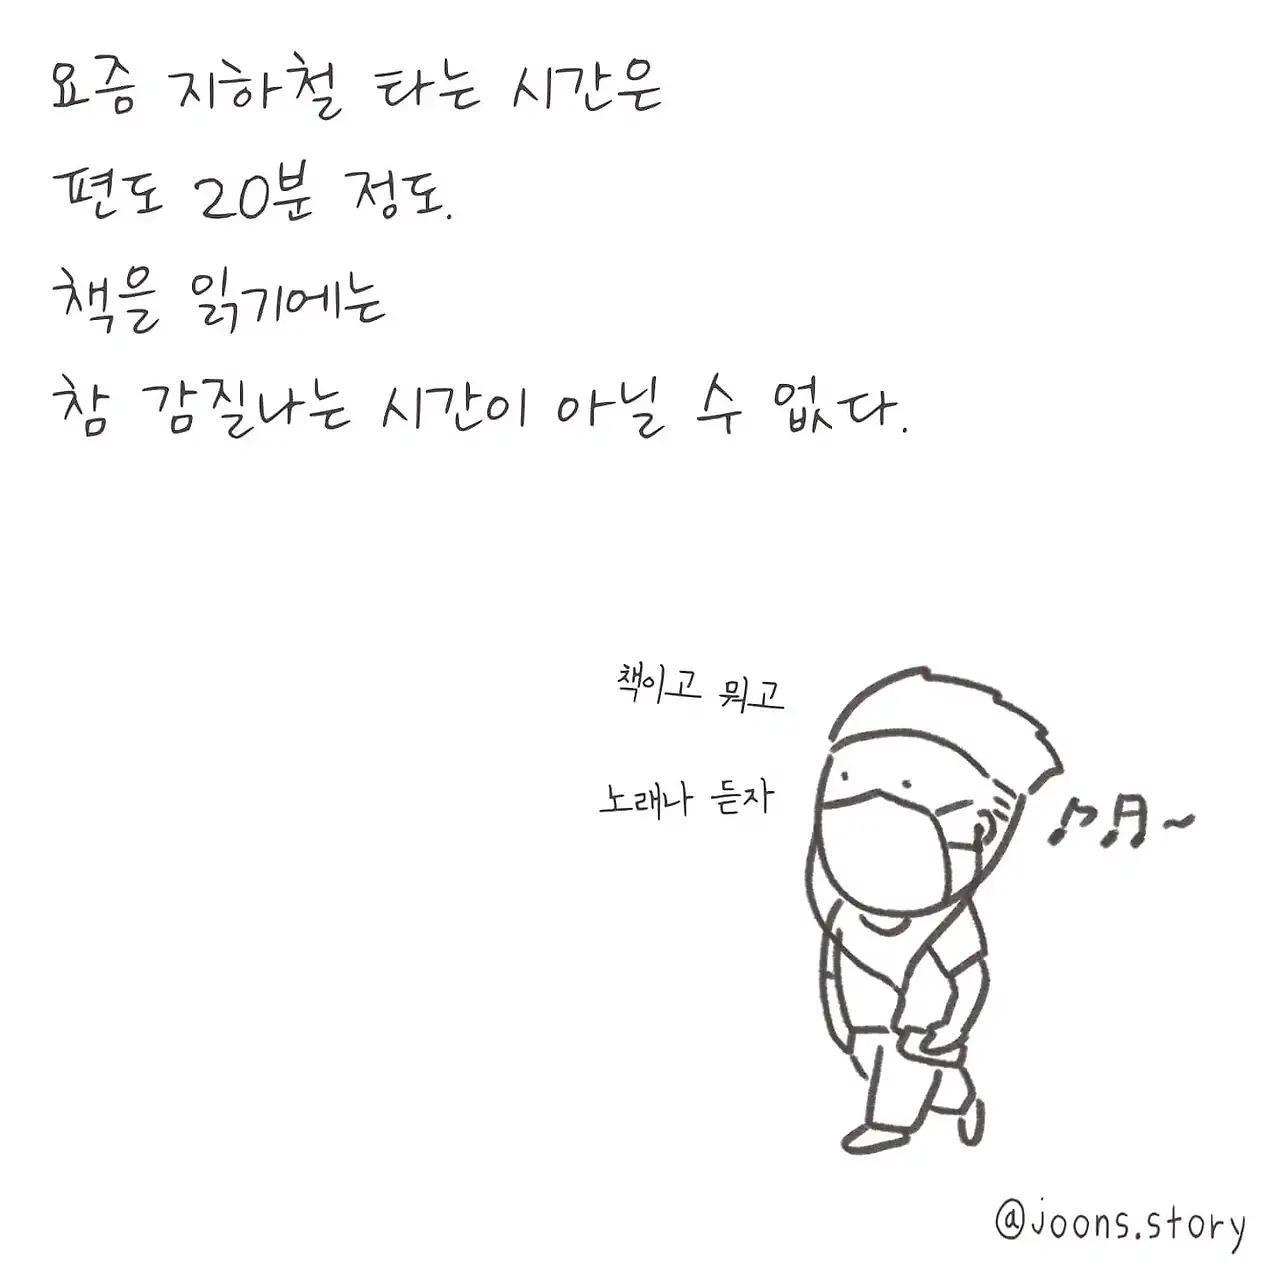 요즘 지하철 타는 시간은
편도 20분 정도.
책을 읽기에는
참 감질나는 시간이 아닐 수 없다.
책이고 뭐고
노래나 듣자
@joons.story